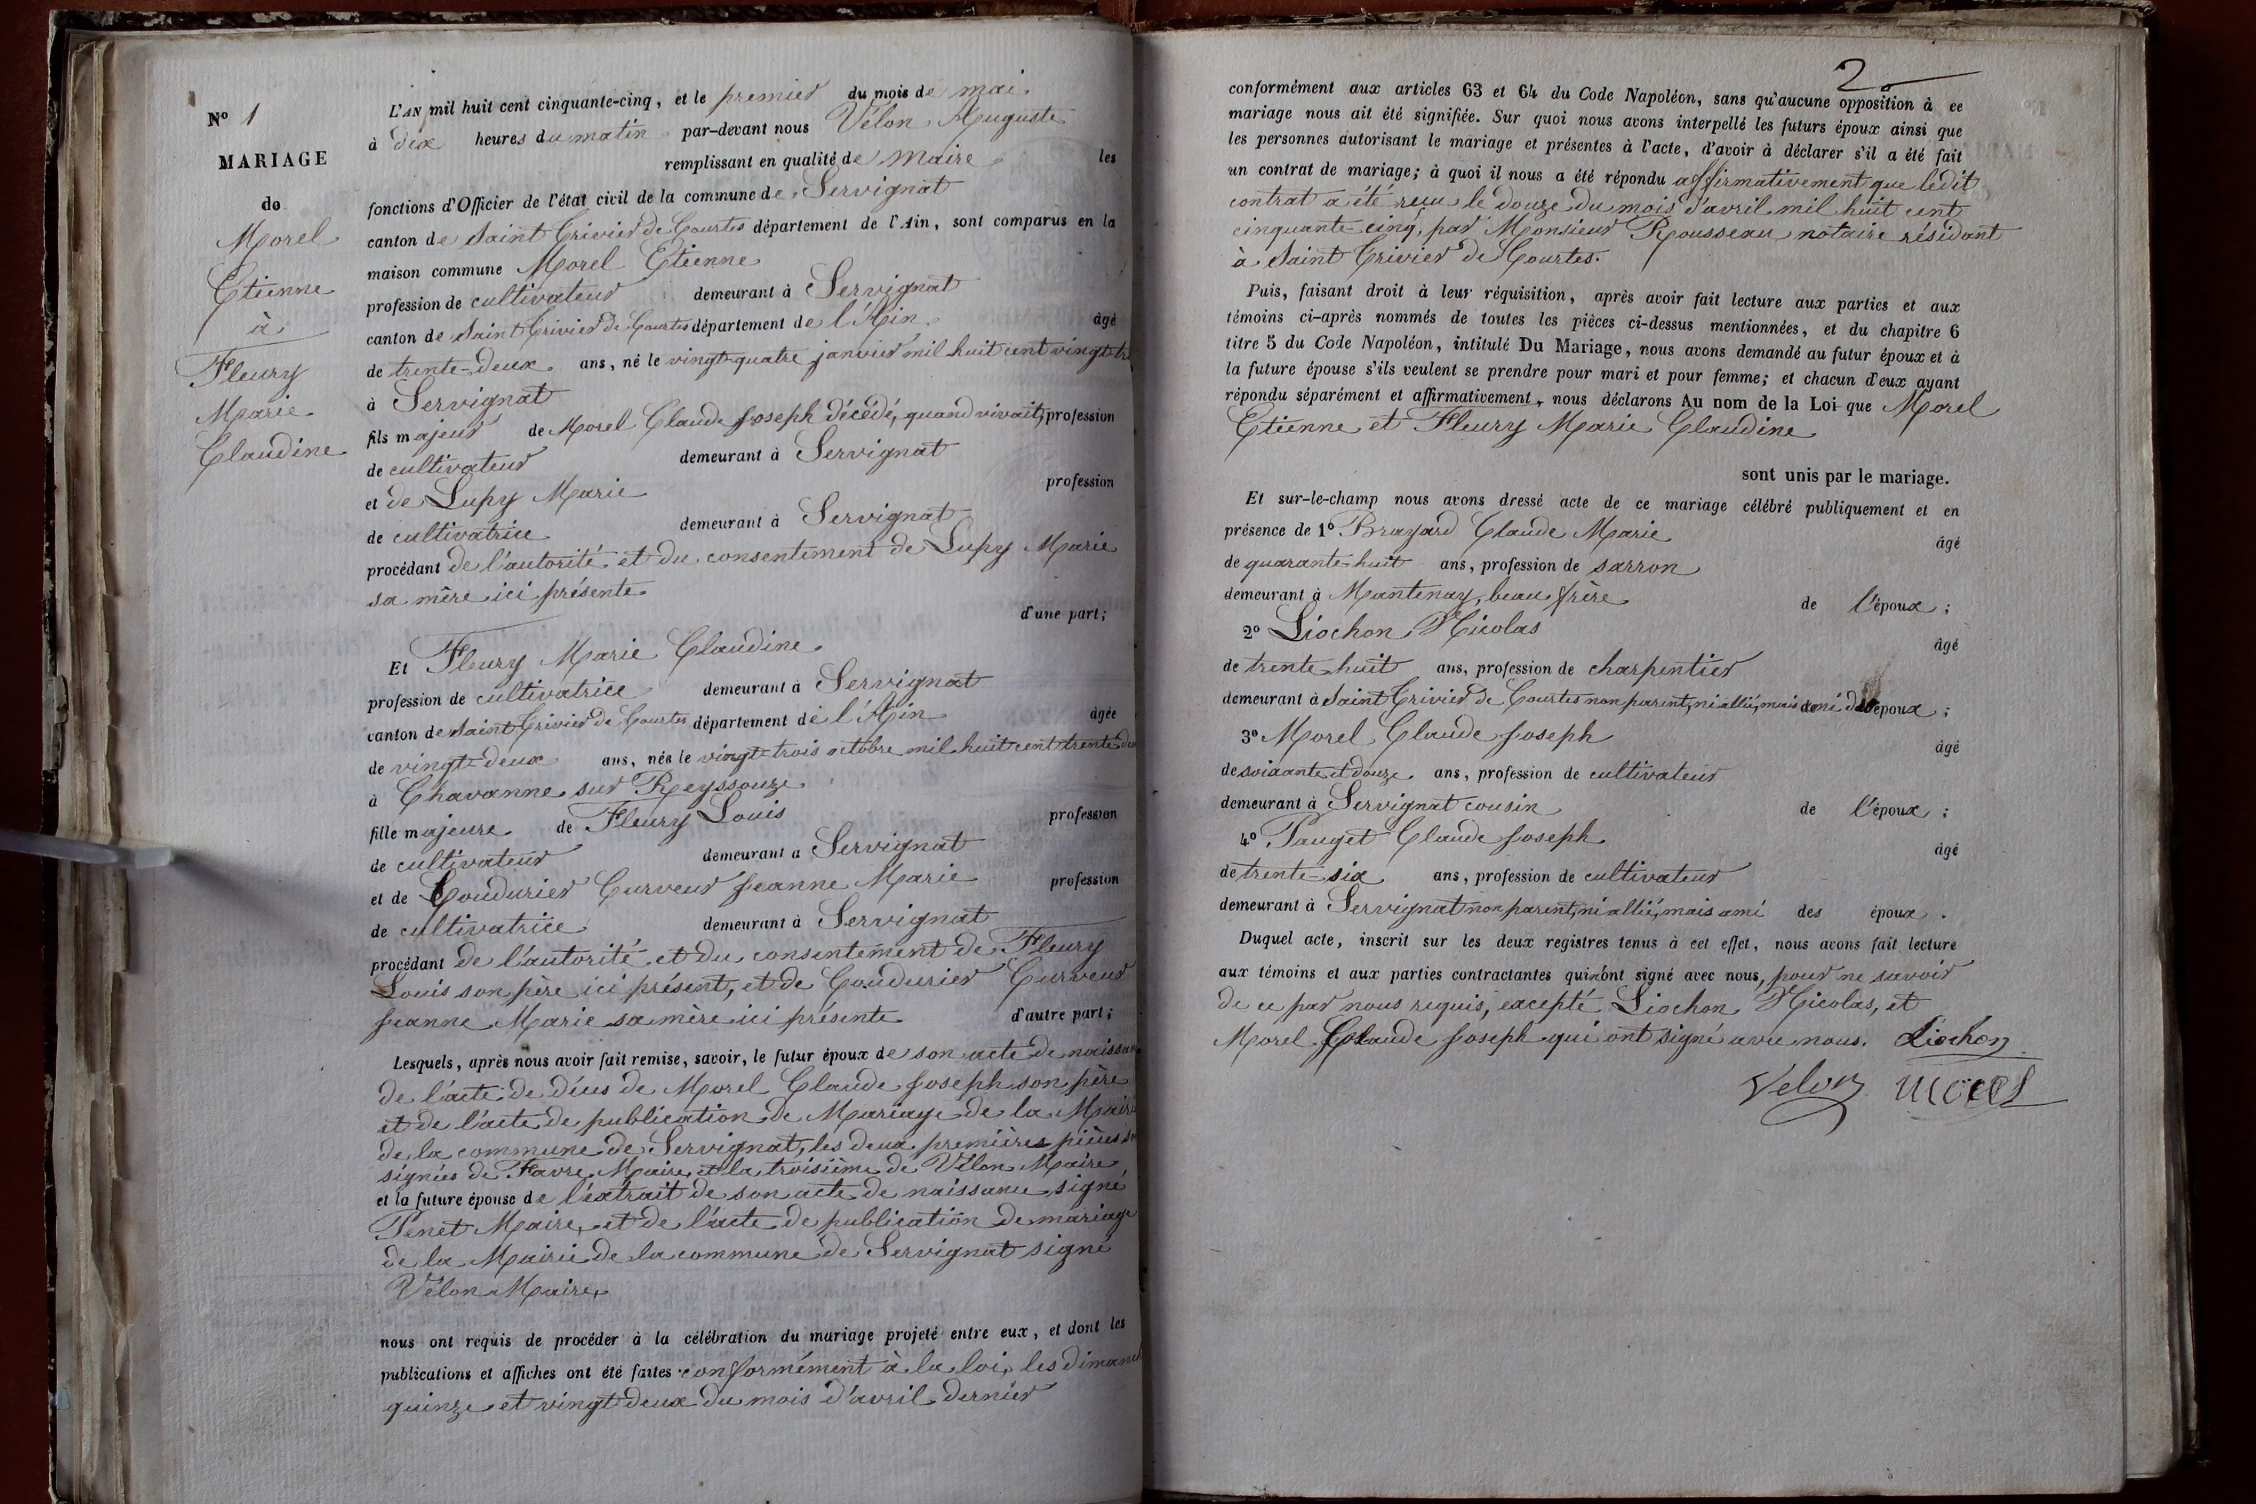 Nº 1
MARIAGE
de
Morel
Etienne
à
Fleury
Marie
Claudine
L'AN mil huit cent cinquante-cinq, et le premier du mois de mai
à dix heures du matin par-devant nous Vélon Auguste
remplissant en qualité de Maire les
fonctions d'Officier de l'état civil de la commune de Servignat
canton de Saint Trivier de Courtes département de l'Ain, sont comparus en la
maison commune Morel Etienne
profession de cultivateur demeurant à Servignat
canton de Saint Trivier de Courtes département de l'Ain âgé
de trente-deux ans, né le vingt-quatre janvier mil huit cent vingt-tr
à Servignat
fils majeur de Morel Claude Joseph décédé, quand vivait, profession
de cultivateur demeurant à Servignat
et de Lupy Marie profession
de cultivatrice demeurant à Servignat
procédant de l'autorité et du consentement de Lupy Marie
sa mère ici présente
d'une part;
Et Fleury Marie Claudine
profession de cultivatrice demeurant à Servignat
canton de Saint Trivier de Courtes département de l'Ain âgée
de vingt-deux ans, née le vingt-trois octobre mil huit cent trente deu
à Chavanne sur Reyssouze
fille majeure de Fleury Louis profession
de cultivateur demeurant à Servignat
et de Coudurier Curveur Jeanne Marie profession
de cultivatrice demeurant à Servignat
procédant de l'autorité et du consentement de Fleury
Louis son père ici présent, et de Coudurier Curveur
Jeanne Marie sa mère ici présente d'autre part;
Lesquels, après nous avoir fait remise, savoir, le futur époux de son acte de naissan
de l'acte de décès de Morel Claude Joseph son père
et de l'acte de publication de Mariage de la Mairi
de la commune de Servignat, les deux premières pièces
signées de Favre Maire, et la troisième de Vélon Maire
et la future épouse de l'extrait de son acte de naissance, signé
Penet Maire, et de l'acte de publication de mariage
de la Mairie de la commune de Servignat signé
Vélon Maire,
nous ont requis de procéder à la célébration du mariage projeté entre eux, et dont les
publications et affiches ont été faites conformément à la loi, les diman
quinze et vingt-deux du mois d'avril dernier
2
conformément aux articles 63 et 64 du Code Napoléon, sans qu'aucune opposition à ce
mariage nous ait été signifiée. Sur quoi nous avons interpellé les futurs époux ainsi que
les personnes autorisant le mariage et présentes à l'acte, d'avoir à déclarer s'il a été fait
un contrat de mariage; à quoi il nous a été répondu affirmativement que ledit
contrat a été reçu le douze du mois d'avril mil huit cent
cinquante-cinq, par Monsieur Rousseau notaire résidant
à Saint Trivier de Courtes.
Puis, faisant droit à leur réquisition, après avoir fait lecture aux parties et aux
témoins ci-après nommés de toutes les pièces ci-dessus mentionnées, et du chapitre 6
titre 5 du Code Napoléon, intitulé Du Mariage, nous avons demandé au futur époux et à
la future épouse s'ils veulent se prendre pour mari et pour femme; et chacun d'eux ayant
répondu séparément et affirmativement, nous déclarons Au nom de la Loi que Morel
Etienne et Fleury Marie Claudine
sont unis par le mariage.
Et sur-le-champ nous avons dressé acte de ce mariage célébré publiquement et en
présence de 1º Brayard Claude Marie âgé
de quarante-huit ans, profession de sarron
demeurant à Mantenay, beau frère de l'époux;
2º Liochon Nicolas âgé
de trente-huit ans, profession de charpentier
demeurant à Saint Trivier de Courtes non parent, ni allié, mais ami des époux;
3º Morel Claude Joseph âgé
de soixante et douze ans, profession de cultivateur
demeurant à Servignat cousin de l'époux;
4º Pauget Claude Joseph âgé
de trente-six ans, profession de cultivateur
demeurant à Servignat non parent, ni allié, mais ami des époux.
Duquel acte, inscrit sur les deux registres tenus à cet effet, nous avons fait lecture
aux témoins et aux parties contractantes qui n'ont signé avec nous, pour ne savoir
de ce par nous requis, excepté Liochon Nicolas, et
Morel Claude Joseph qui ont signé avec nous. Liochon
Velon Morel